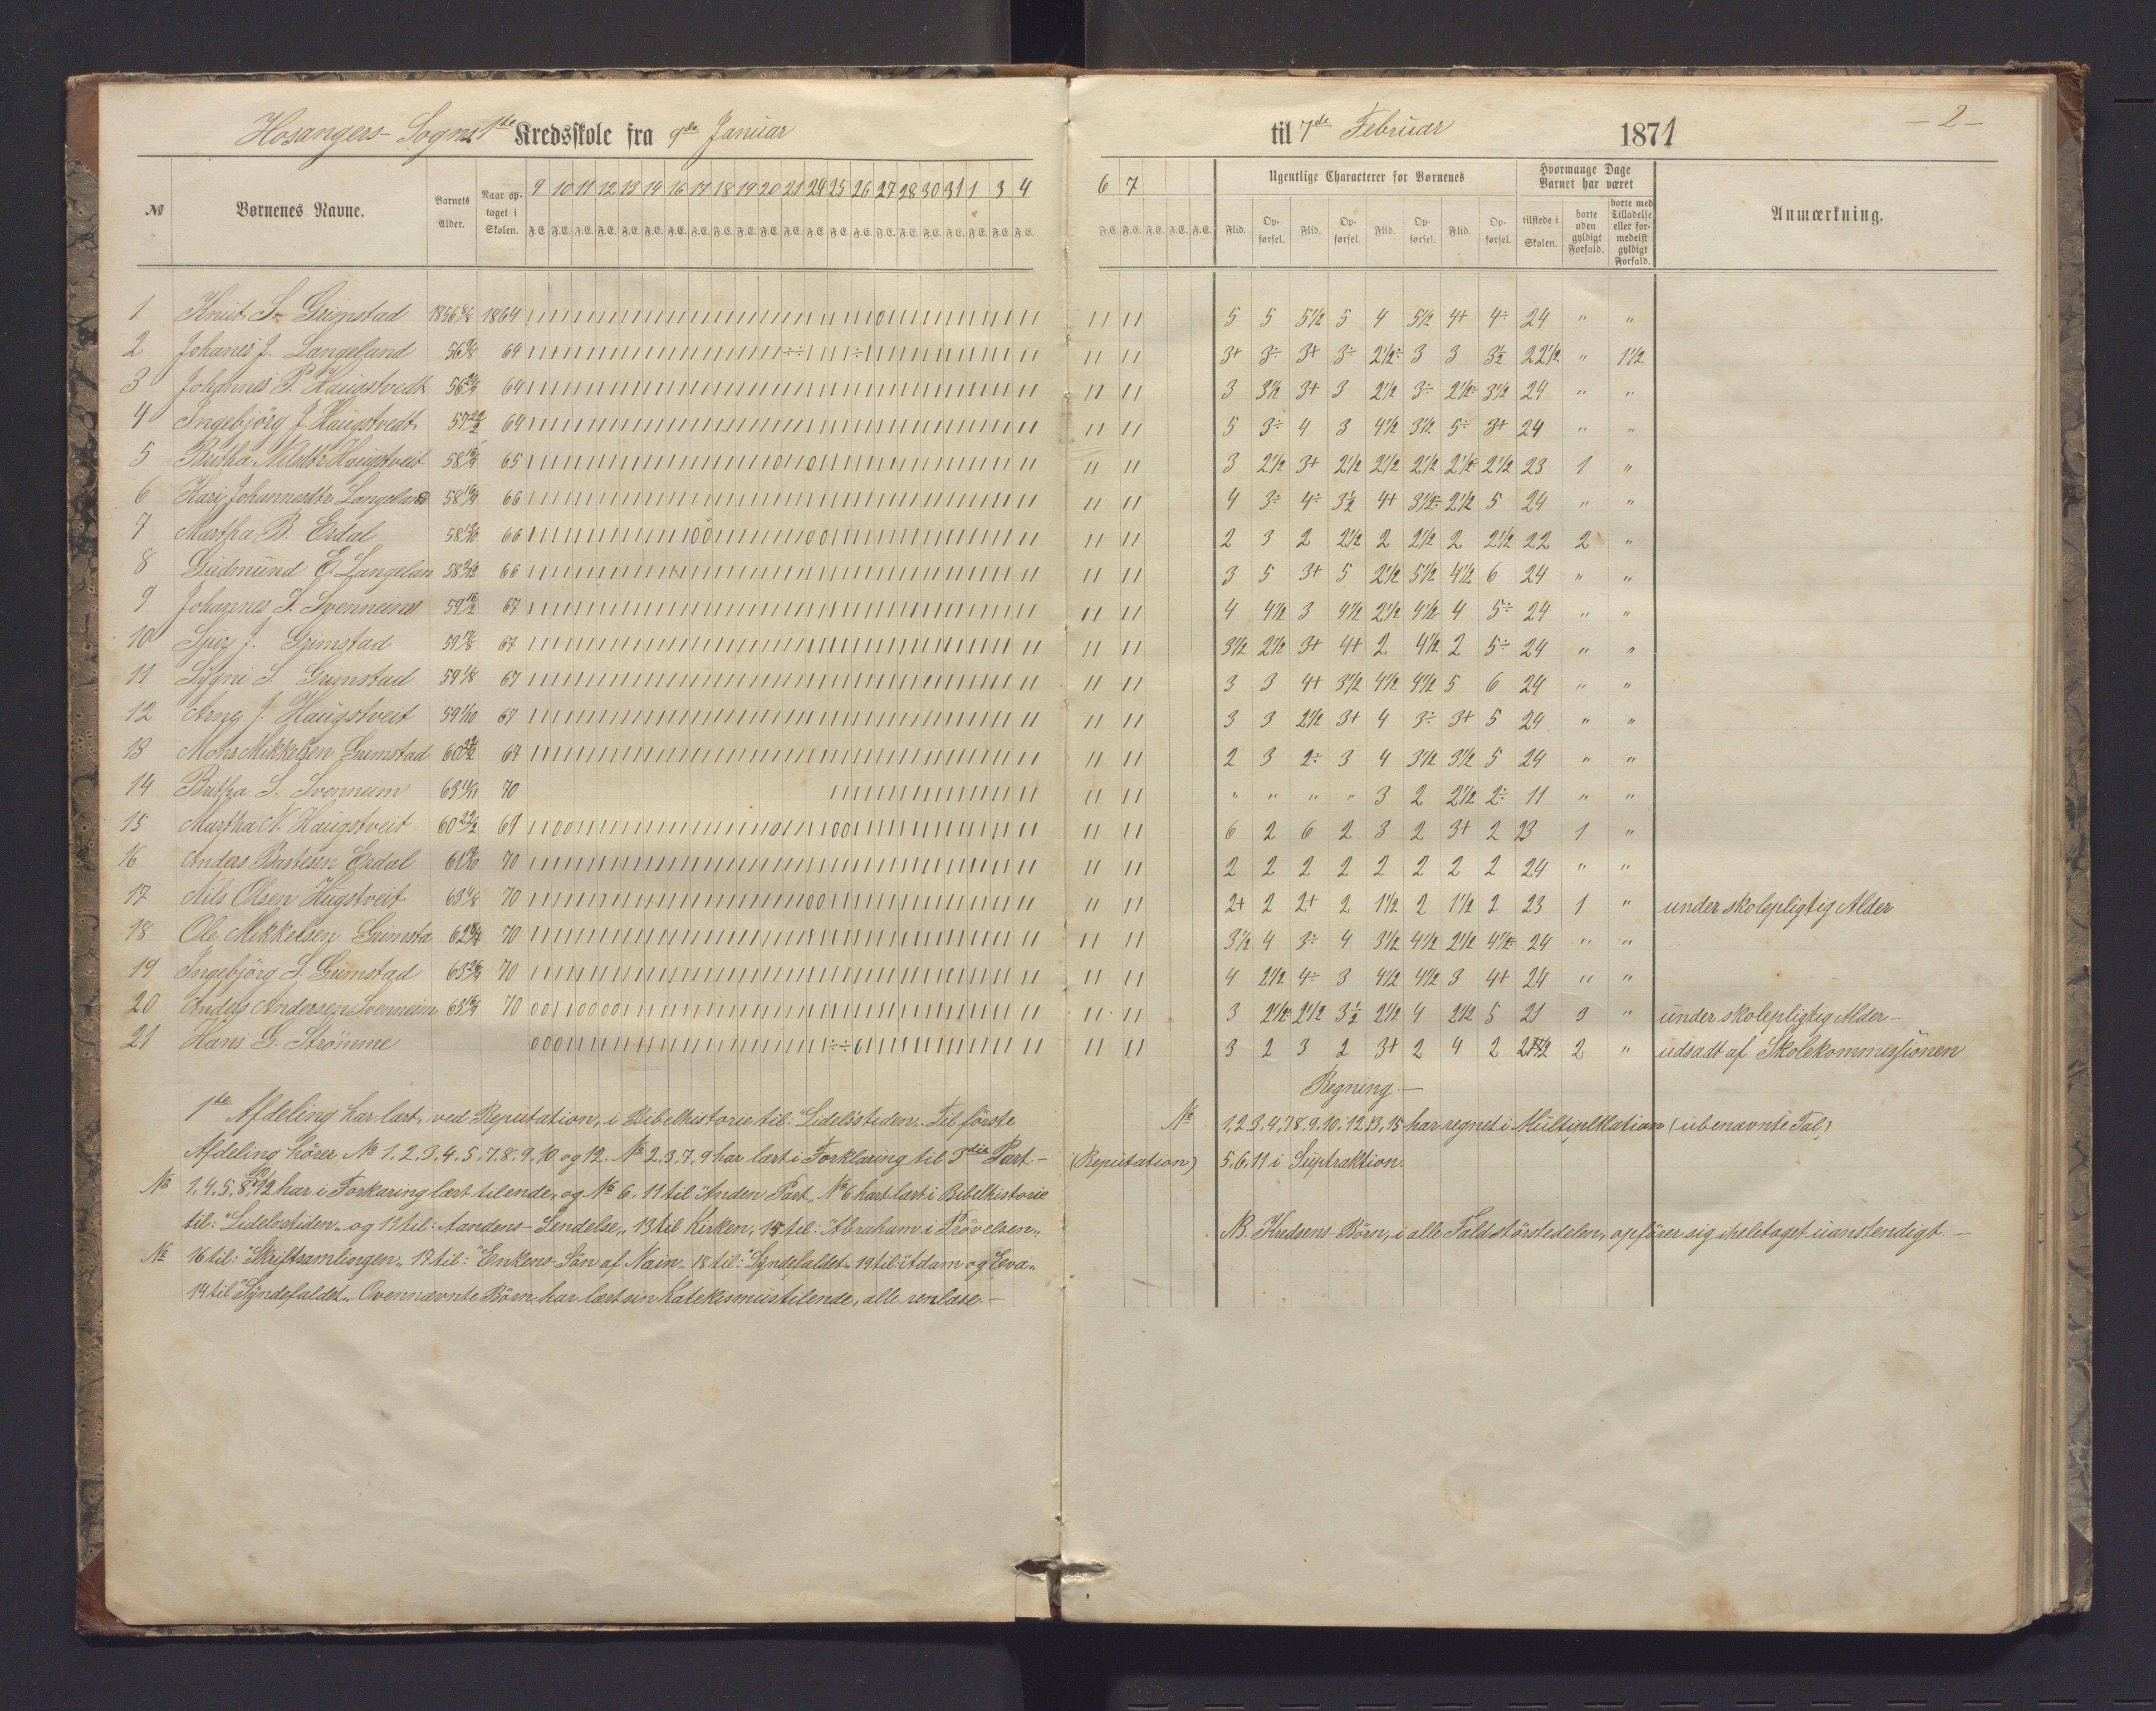 Hosangers Sogns 1ste Kredsskole fra 9de Januar til 7de Februar 1871 - 2 -
№ Børnenes Navne. Barnets Alder. Naar optaget i Skolen. 9 10 11 12 13 14 16 17 18 19 20 21 24 25 26 27 28 30 31 1 3 4 6 7 Ugentlige Characterer for Børnenes Hvormange Dage Barnet har været Anmærkning.
F.E. Flid. Opførsel. Flid. Opførsel. Flid. Opførsel. Flid. Opførsel. tilstede i Skolen. borte uden gyldigt Forfald. borte med Tilladelse eller formedelst gyldigt Forfald.
1 Knut S. Grimstad 1864 5 5 5½ 5 4 5½ 4+ 4÷ 24 " "
2 Johanes J. Langeland 64 3+ 3÷ 3+ 3÷ 2½÷ 3 3 3½ 22½ " 1½
3 Johannes P. Haugstvedt 64 3 3½ 3+ 3 2½ 3÷ 2½÷ 3½ 24 " "
4 Ingebjörg J. Haugstvedt 64 5 3÷ 4 3 4½ 3½ 5÷ 3+ 24 " "
5 Britha Nilsdtr Haugstveit 65 3 2½ 3+ 2½ 2½ 2½ 2½÷ 2½ 23 1 "
6 Kari Johannesdtr Langeland 66 4 3÷ 4÷ 3½ 4+ 3½÷ 2½ 5 24 " "
7 Martha B. Erdal 66 2 3 2 2½ 2 2½ 2 2½ 22 2 "
8 Gudmund E. Langelan 66 3 5 3+ 5 2½ 5½ 4½ 6 24 " "
9 Johannes S. Svenneim 67 4 4½ 3 4½ 2½ 4½ 4 5÷ 24 " "
10 J. Grimstad 67 3½ 2½ 3+ 4+ 2 4½ 2 5÷ 24 " "
11 Sygni S. Grimstad 67 3 3 4+ 3½ 4½ 4½ 5 6 24 " "
12 Arne J. Haugstveit 67 3 3 2½ 3+ 4 3÷ 3+ 5 24 " "
13 Mons Mikkelsen Grimstad 67 2 3 2÷ 3 4 3½ 3½ 5 24 " "
14 Britha S. Svenneim 70 " " " " 3 2 2½ 2÷ 11 " "
15 Martha N. Haugstveit 69 6 2 6 2 3 2 3+ 2 23 1 "
16 Anders Erdal 70 2 2 2 2 2 2 2 2 24 " "
17 Nils Olsen Hugstveit 70 2+ 2 2+ 2 1½ 2 1½ 2 23 1 " under skolepligtig Alder
18 Ole Mikkelsen Grimsta 70 3½ 4 3÷ 4 3½ 4½ 2½ 4½÷ 24 " "
19 Ingebjörg S. Grimstad 70 4 2½ 4÷ 3 4½ 4½ 3 4+ 24 " "
20 Anders Andersen Svenneim 70 3 2½ 2½ 3½ 2½ 4 2½ 5 21 3 " under skolepligtig Alder -
21 Hans G. Strömme 3 2 3 2 3+ 2 4 2 2 " udsadt af Skolekommissionen
1ste Afdeling har lært, ved Repitation, i Bibelhistorie til: "Lidelstiden". Til förste
Afdeling hörer № 1.2.3.4.5.7.8.9.10 og 12. № 2.3.7.9 har lært i Forklaring til 3die Part.-
№ 1.4.5.8.10.12 har i Forkaring lært tilende, og № 6. 11 til "Anden Part". № 6 hart lært i Bibelhistorie
til: "Lidelsstiden" og 11 til: Aandens-Sendelse", 13 til Kirken, 15 til: "Abraham i Prövelsen".
№ 16 til: "Skriftsamlingen". 17 til: "Enkens Sön af Nain". 18 til: "Syndefaldet". 19 til: "Adam og Eva".
14 til "Syndefaldet". Ovennævnte Börn har lært sin Katekismus tilende, alle renlæse.-
Regning.-
№ 1,2.3.4.7.8.9.10.12.13.15 har regnet i Multiplikation (ubenævnte Tal)
(Repitation) 5.6.11 i Suptraktion.
NB. Kredsens Börn, i alle Fald störstedelen, opförer sig iheletaget uanstendigt.-